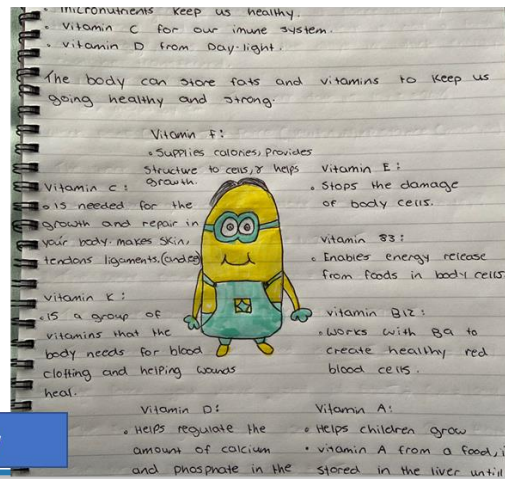 • micronutrients keep us healthy.
• vitamin C for our imune system.
• vitamin D from Day-light.
The body can store fats and vitamins to keep us
going healthy and strong.
Vitamin F:
• Supplies calories, Provides
structure to cells, & helps
growth.
Vitamin C:
• is needed for the
growth and repair in
your body. makes skin,
tendons ligaments.
Vitamin K:
• is a group of
vitamins that the
body needs for blood
clotting and helping wounds
heal.
Vitamin E:
• Stops the damage
of body cells.
Vitamin B3:
• Enables energy release
from foods in body cells.
vitamin B12:
• works with B9 to
create healthy red
blood cells.
Vitamin D:
• Helps regulate the
amount of calcium
and phosphate in the
Vitamin A:
• Helps children grow
• vitamin A from a food, i
stored in the liver untill